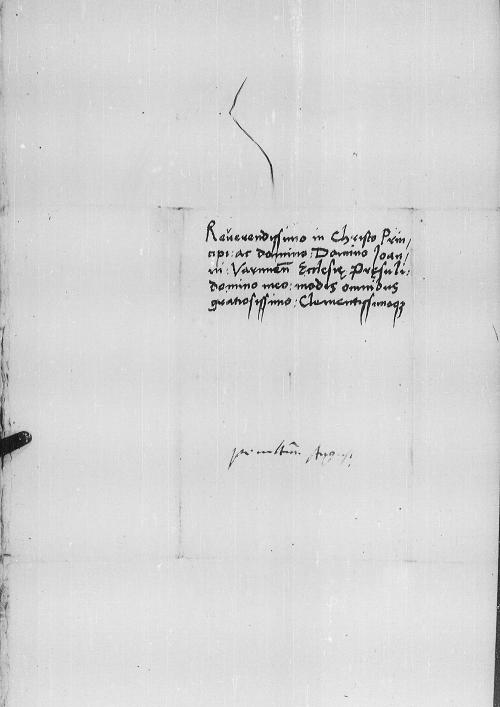 Reuerendissimo in Christo Prin/
cipi: ac domino: Domino Joan/
ni: Varmien̄ Eclesię Pręsuli:
domino meo: modis omnibus
gratiosissimo: Clementissimoq3